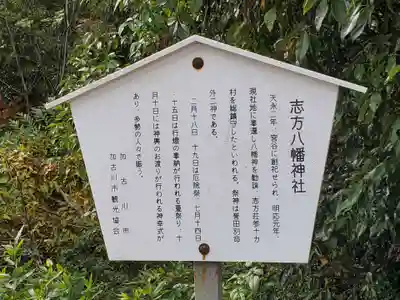 志方八幡神社
天永二年、宮谷に創祀せられ、明応元年、
現社地に奉遷し八幡神を勧請、志方荘参十カ
村を総鎮守したといわれる。祭神は誉田別命
外二神である。
二月十八日、十九日は厄除祭、七月十四日
十五日は行燈の奉納が行われる夏祭り、十
月十日には神輿のお渡りが行われる神幸式が
あり、多勢の人々で賑う。
加古川市
加古川市観光協会